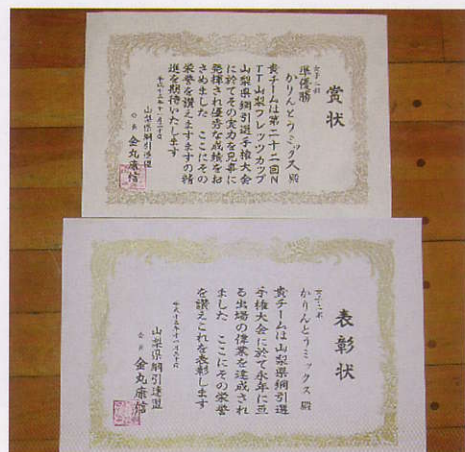 賞状
女子の部
準優勝
かりんとうミックス 殿
貴チームは第二十二回N
TT山梨フレッツカップ
山梨県綱引選手権大会
に於てその実力を見事に
発揮され優秀な成績をお
さめました ここにその
栄誉を讃えますますの精
進を期待いたします
山梨県綱引連盟
会長 金丸康信
表彰状
女子の部
かりんとうミックス 殿
貴チームは山梨県綱引選
手権大会に於て永年に亘
る出場の偉業を達成され
ました ここにその栄誉
を讃えこれを表彰します
山梨県綱引連盟
会長 金丸康信